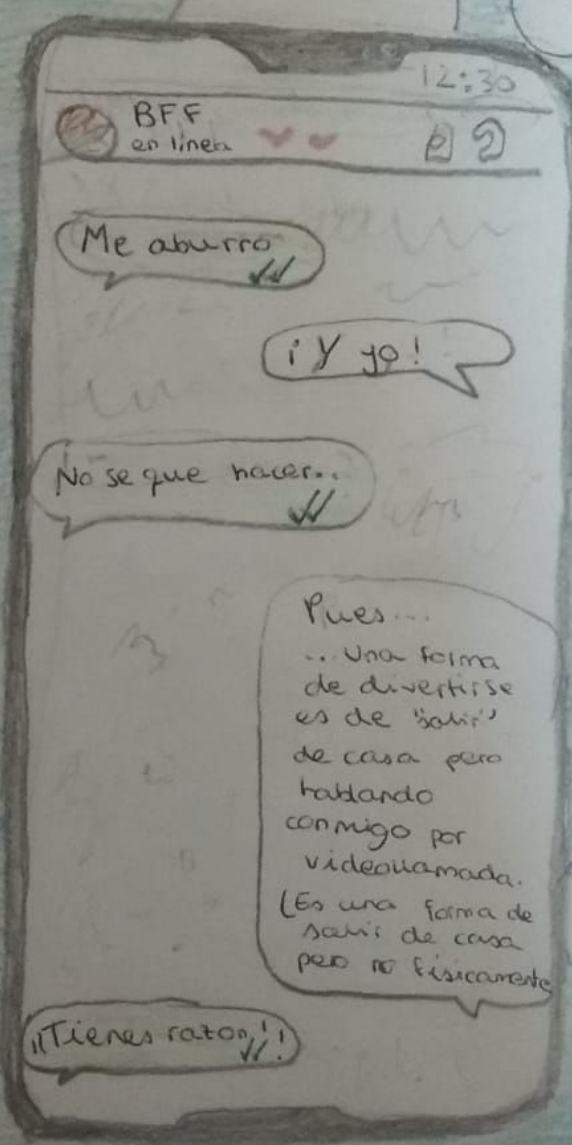 12:30
BFF
en línea
Me aburro
¡Y yo!
No se que hacer...
Pues...
... Una forma
de divertirse
es de "salir"
de casa pero
hablando
conmigo por
videollamada.
(Es una forma de
salir de casa
pero no físicamente
¡¡Tienes razon!!